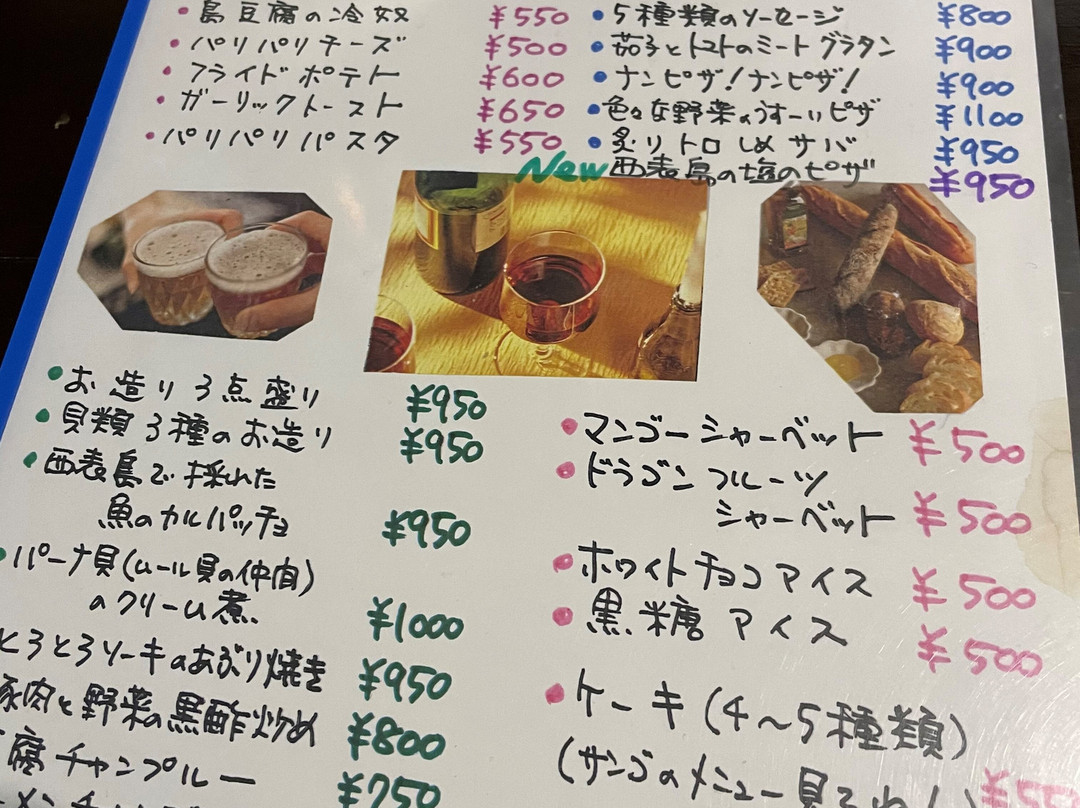 島豆腐の冷奴 ¥550
パリパリチーズ ¥500
フライドポテト ¥600
ガーリックトースト ¥650
パリパリパスタ ¥550
5種類のソーセージ ¥800
茄子とトマトのミートグラタン ¥900
ナンピザ!ナンピザ! ¥900
色々な野菜のうすーいピザ ¥1100
炙りトロしめサバ ¥950
New 西表島の塩のピザ ¥950
お造り3点盛り ¥950
貝類3種のお造り ¥950
西表島で採れた
魚のカルパッチョ ¥950
パーナ貝(ムール貝の仲間)
のクリーム煮 ¥1000
とろとろソーキのあぶり焼き ¥950
豚肉と野菜の黒酢炒め ¥800
腐チャンプルー ¥750
マンゴーシャーベット ¥500
ドラゴンフルーツ
シャーベット ¥500
ホワイトチョコアイス ¥500
黒糖アイス ¥500
ケーキ(4~5種類)
(サンゴのメニュー見てね!)